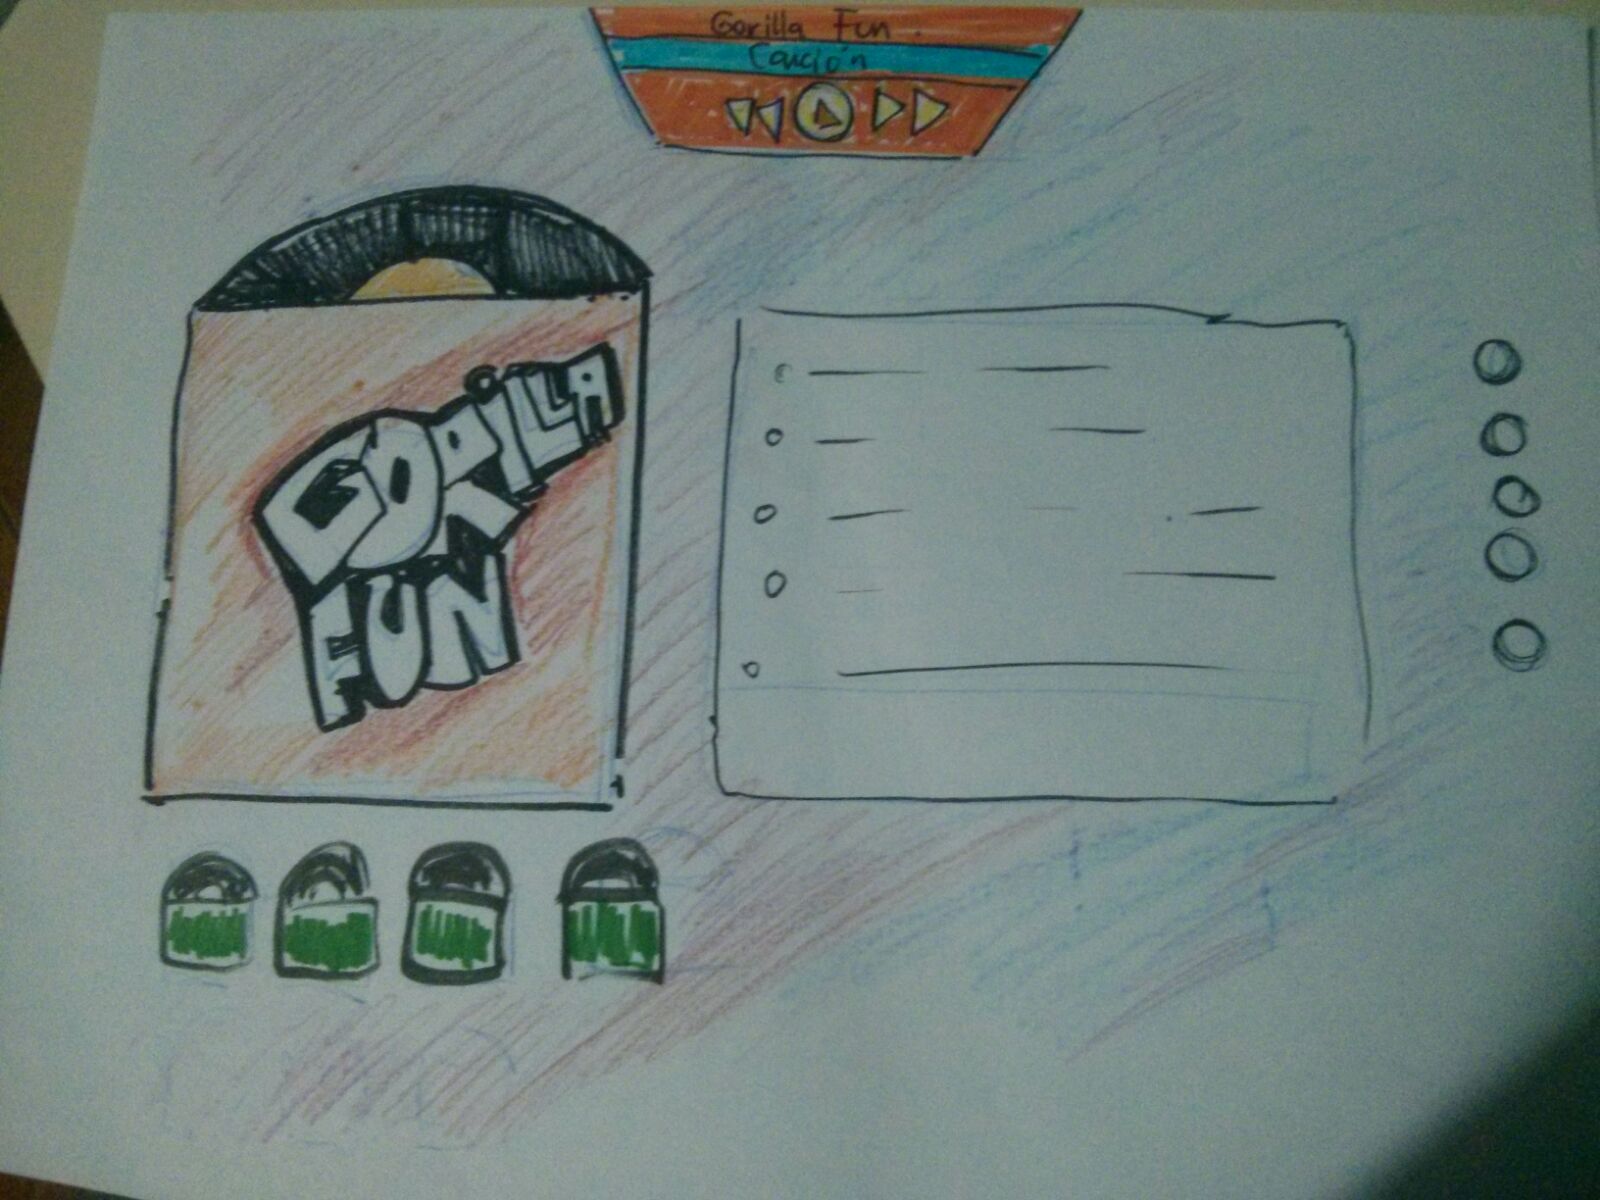 Gorilla Fun.
Canción
GORILLA
FUN